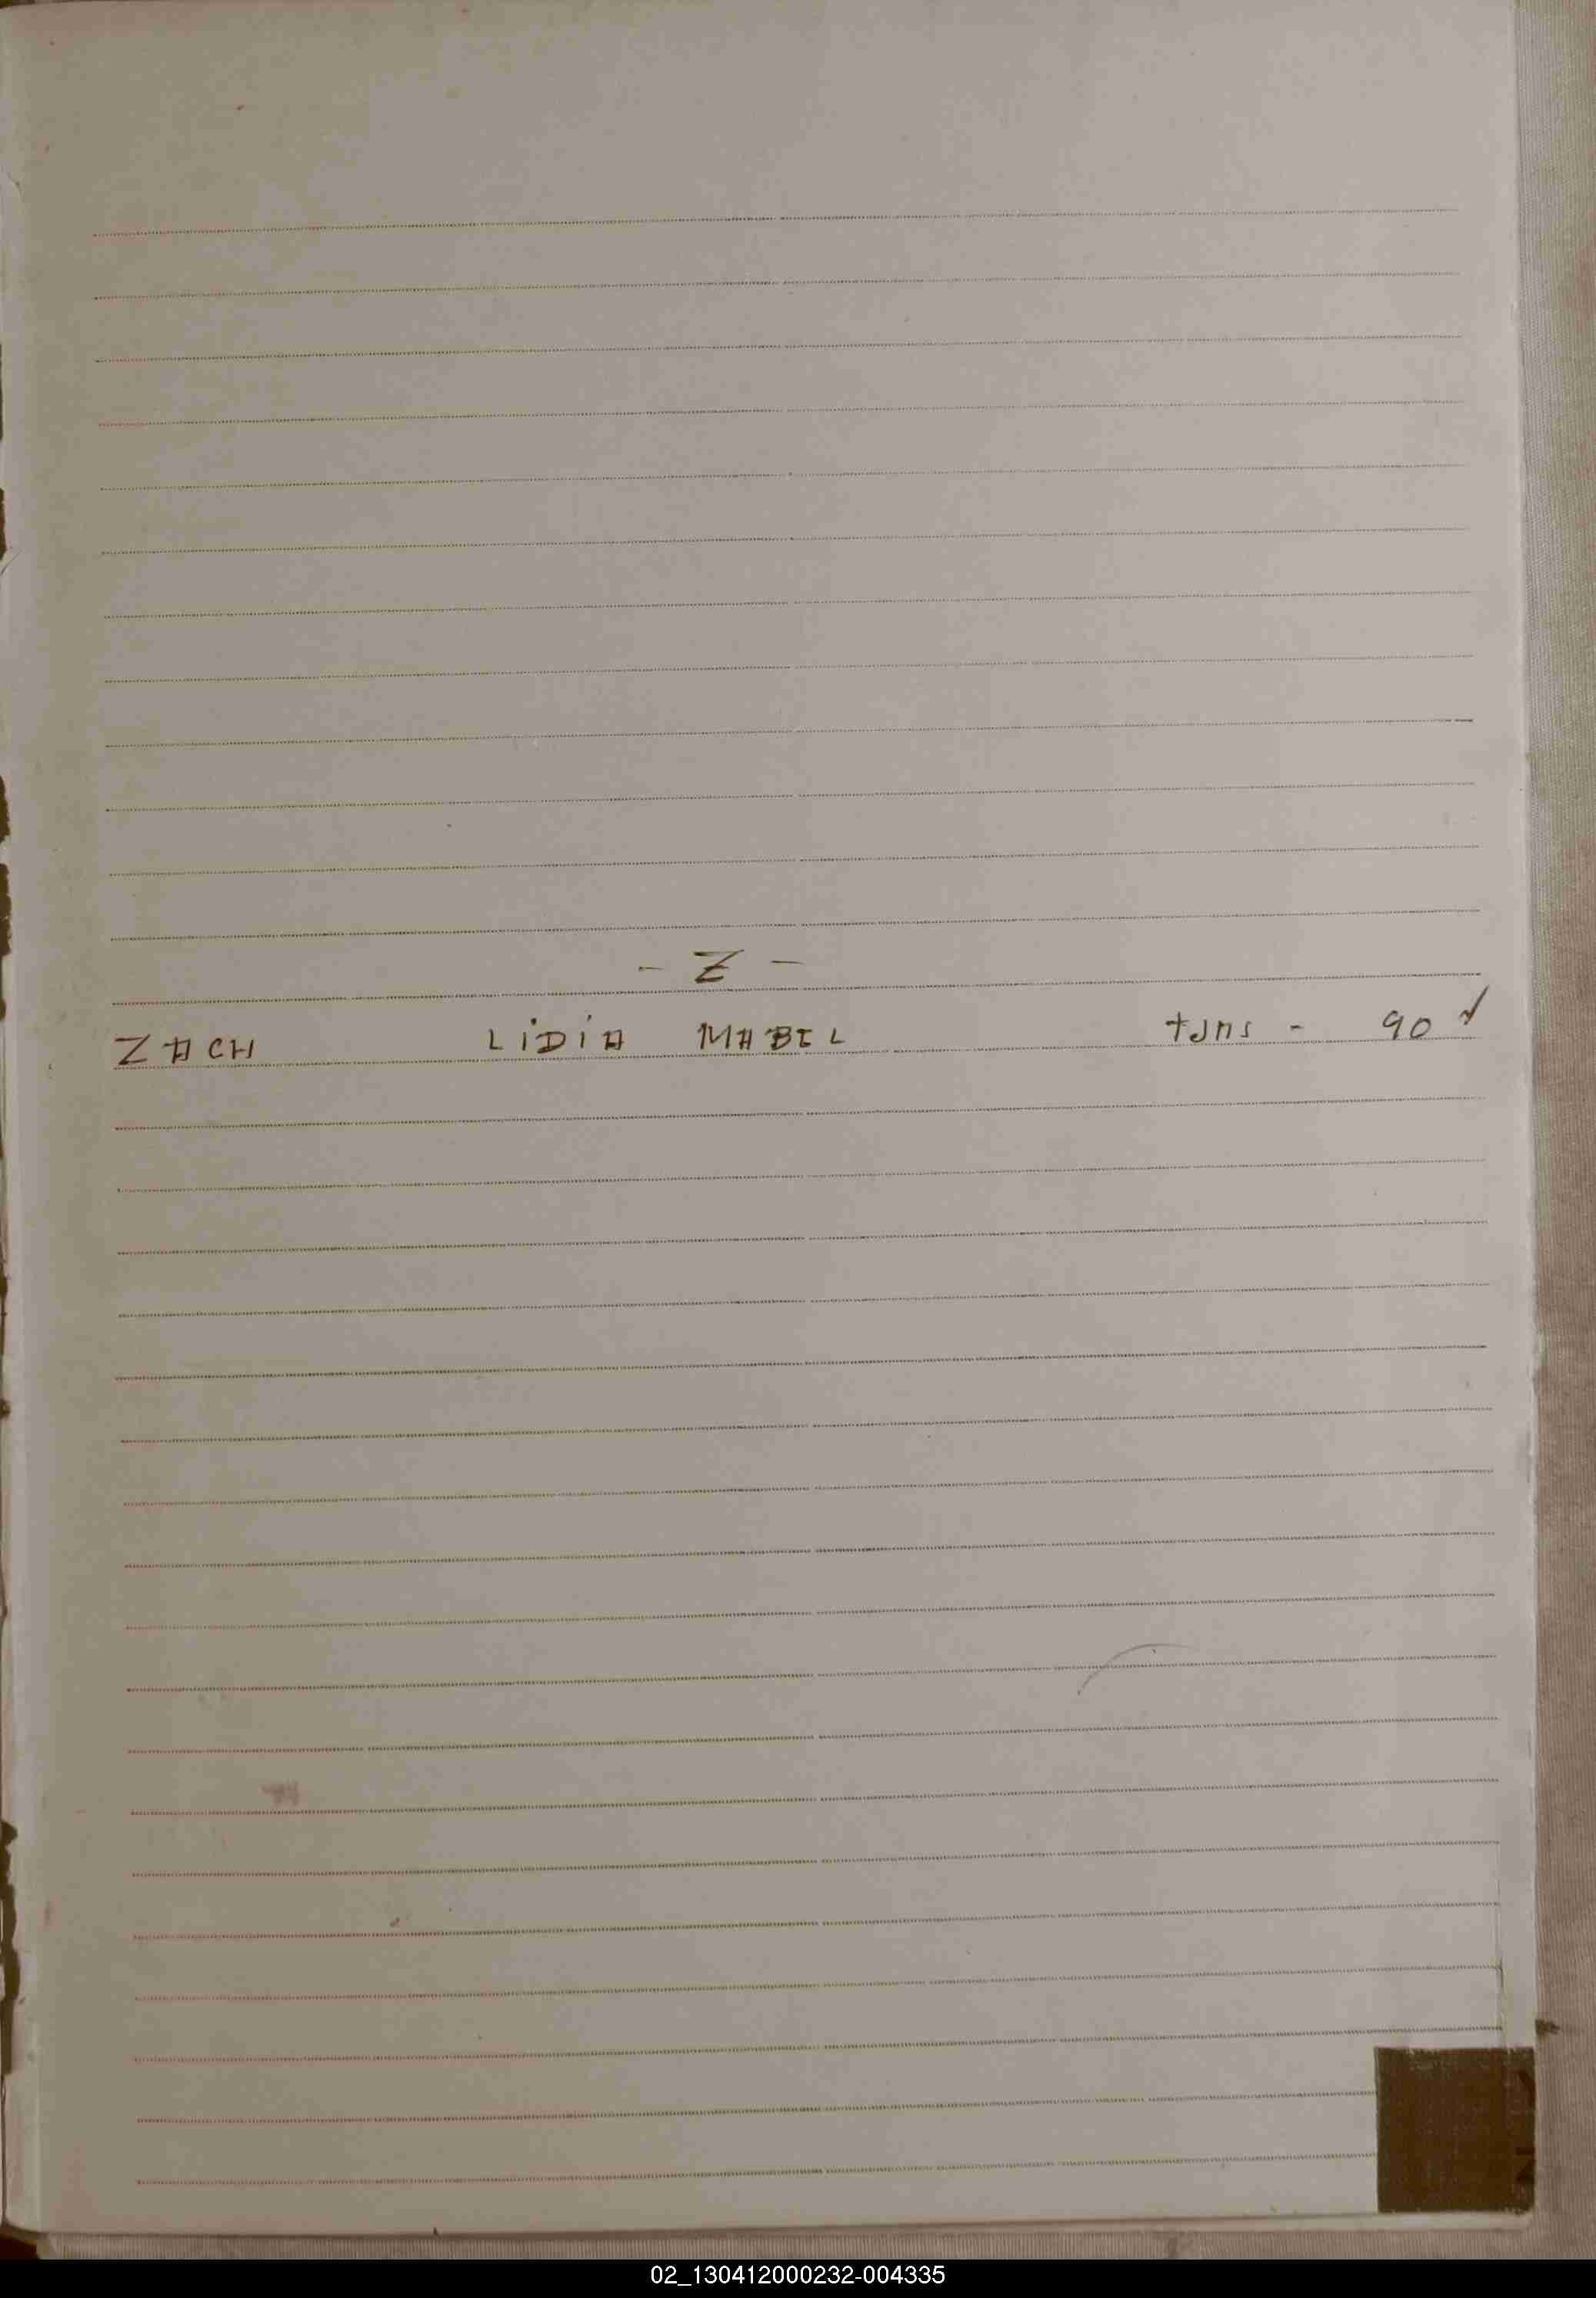 - Z -
ZACH LiDiA MABEL - 90
02_130412000232-004335